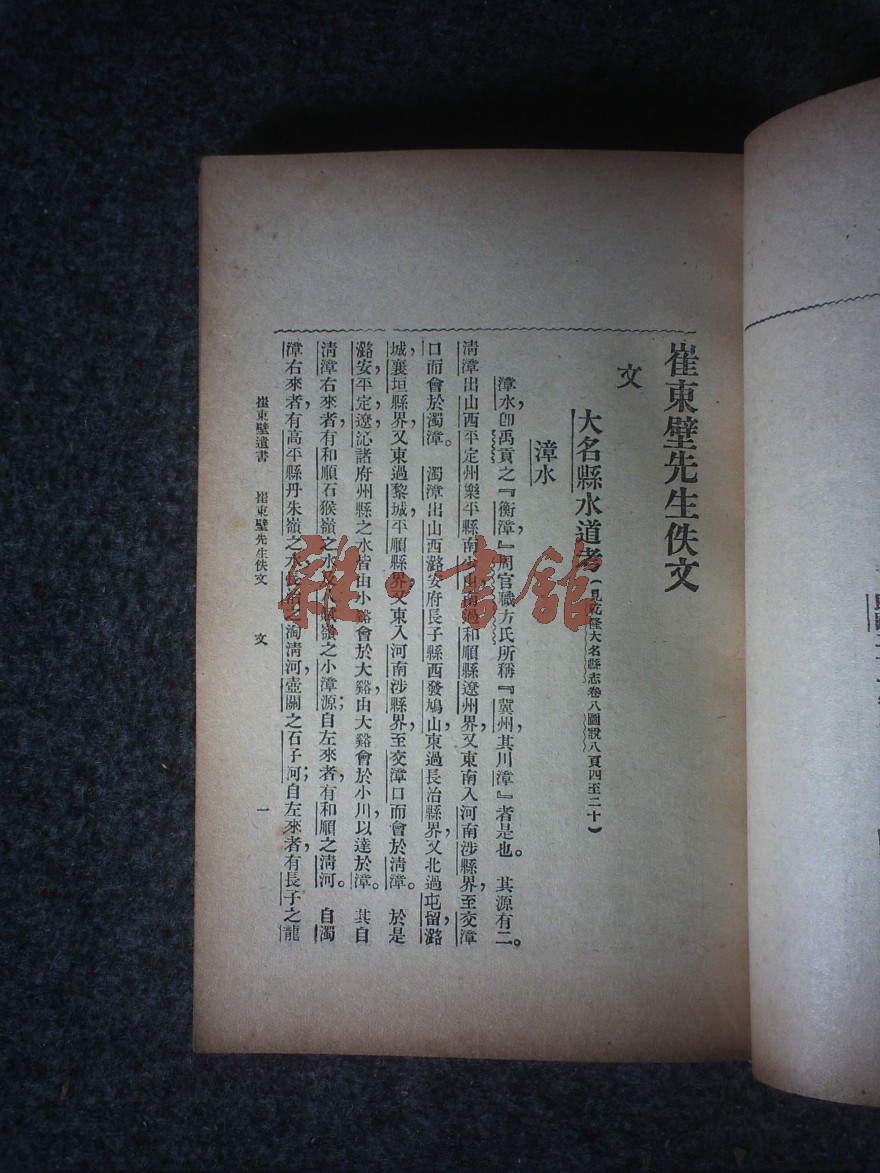 崔東壁先生佚文
文
大名縣水道考(見乾隆大名縣志卷八圖說八頁四至二十)
漳水
漳水,卽禹貢之『衡漳』周官職方氏所稱『冀州,其川漳』者是也。其源有二。
淸漳出山西平定州樂平縣南少山,南過和順縣遼州界,又東南入河南涉縣界,至交漳
口而會於濁漳。濁漳出山西潞安府長子縣西發鳩山,東過長治縣界,又北過屯留,潞
城,襄垣縣界,又東過黎城,平順縣界,又東入河南涉縣界,至交漳口而會於淸漳。於是
潞安,平定,遼,沁諸府州縣之水皆由小谿會於大谿,由大谿會於小川以達於漳。其自
淸漳右來者,有和順石猴嶺之水及八賦嶺之小漳源;自左來者,有和順之淸河。自濁
漳右來者,有高平縣丹朱嶺之水,長治之淘淸河,壺關之石子河;自左來者,有長子之龍
崔東壁遺書 崔東壁先生佚文 文 一
雜·書館